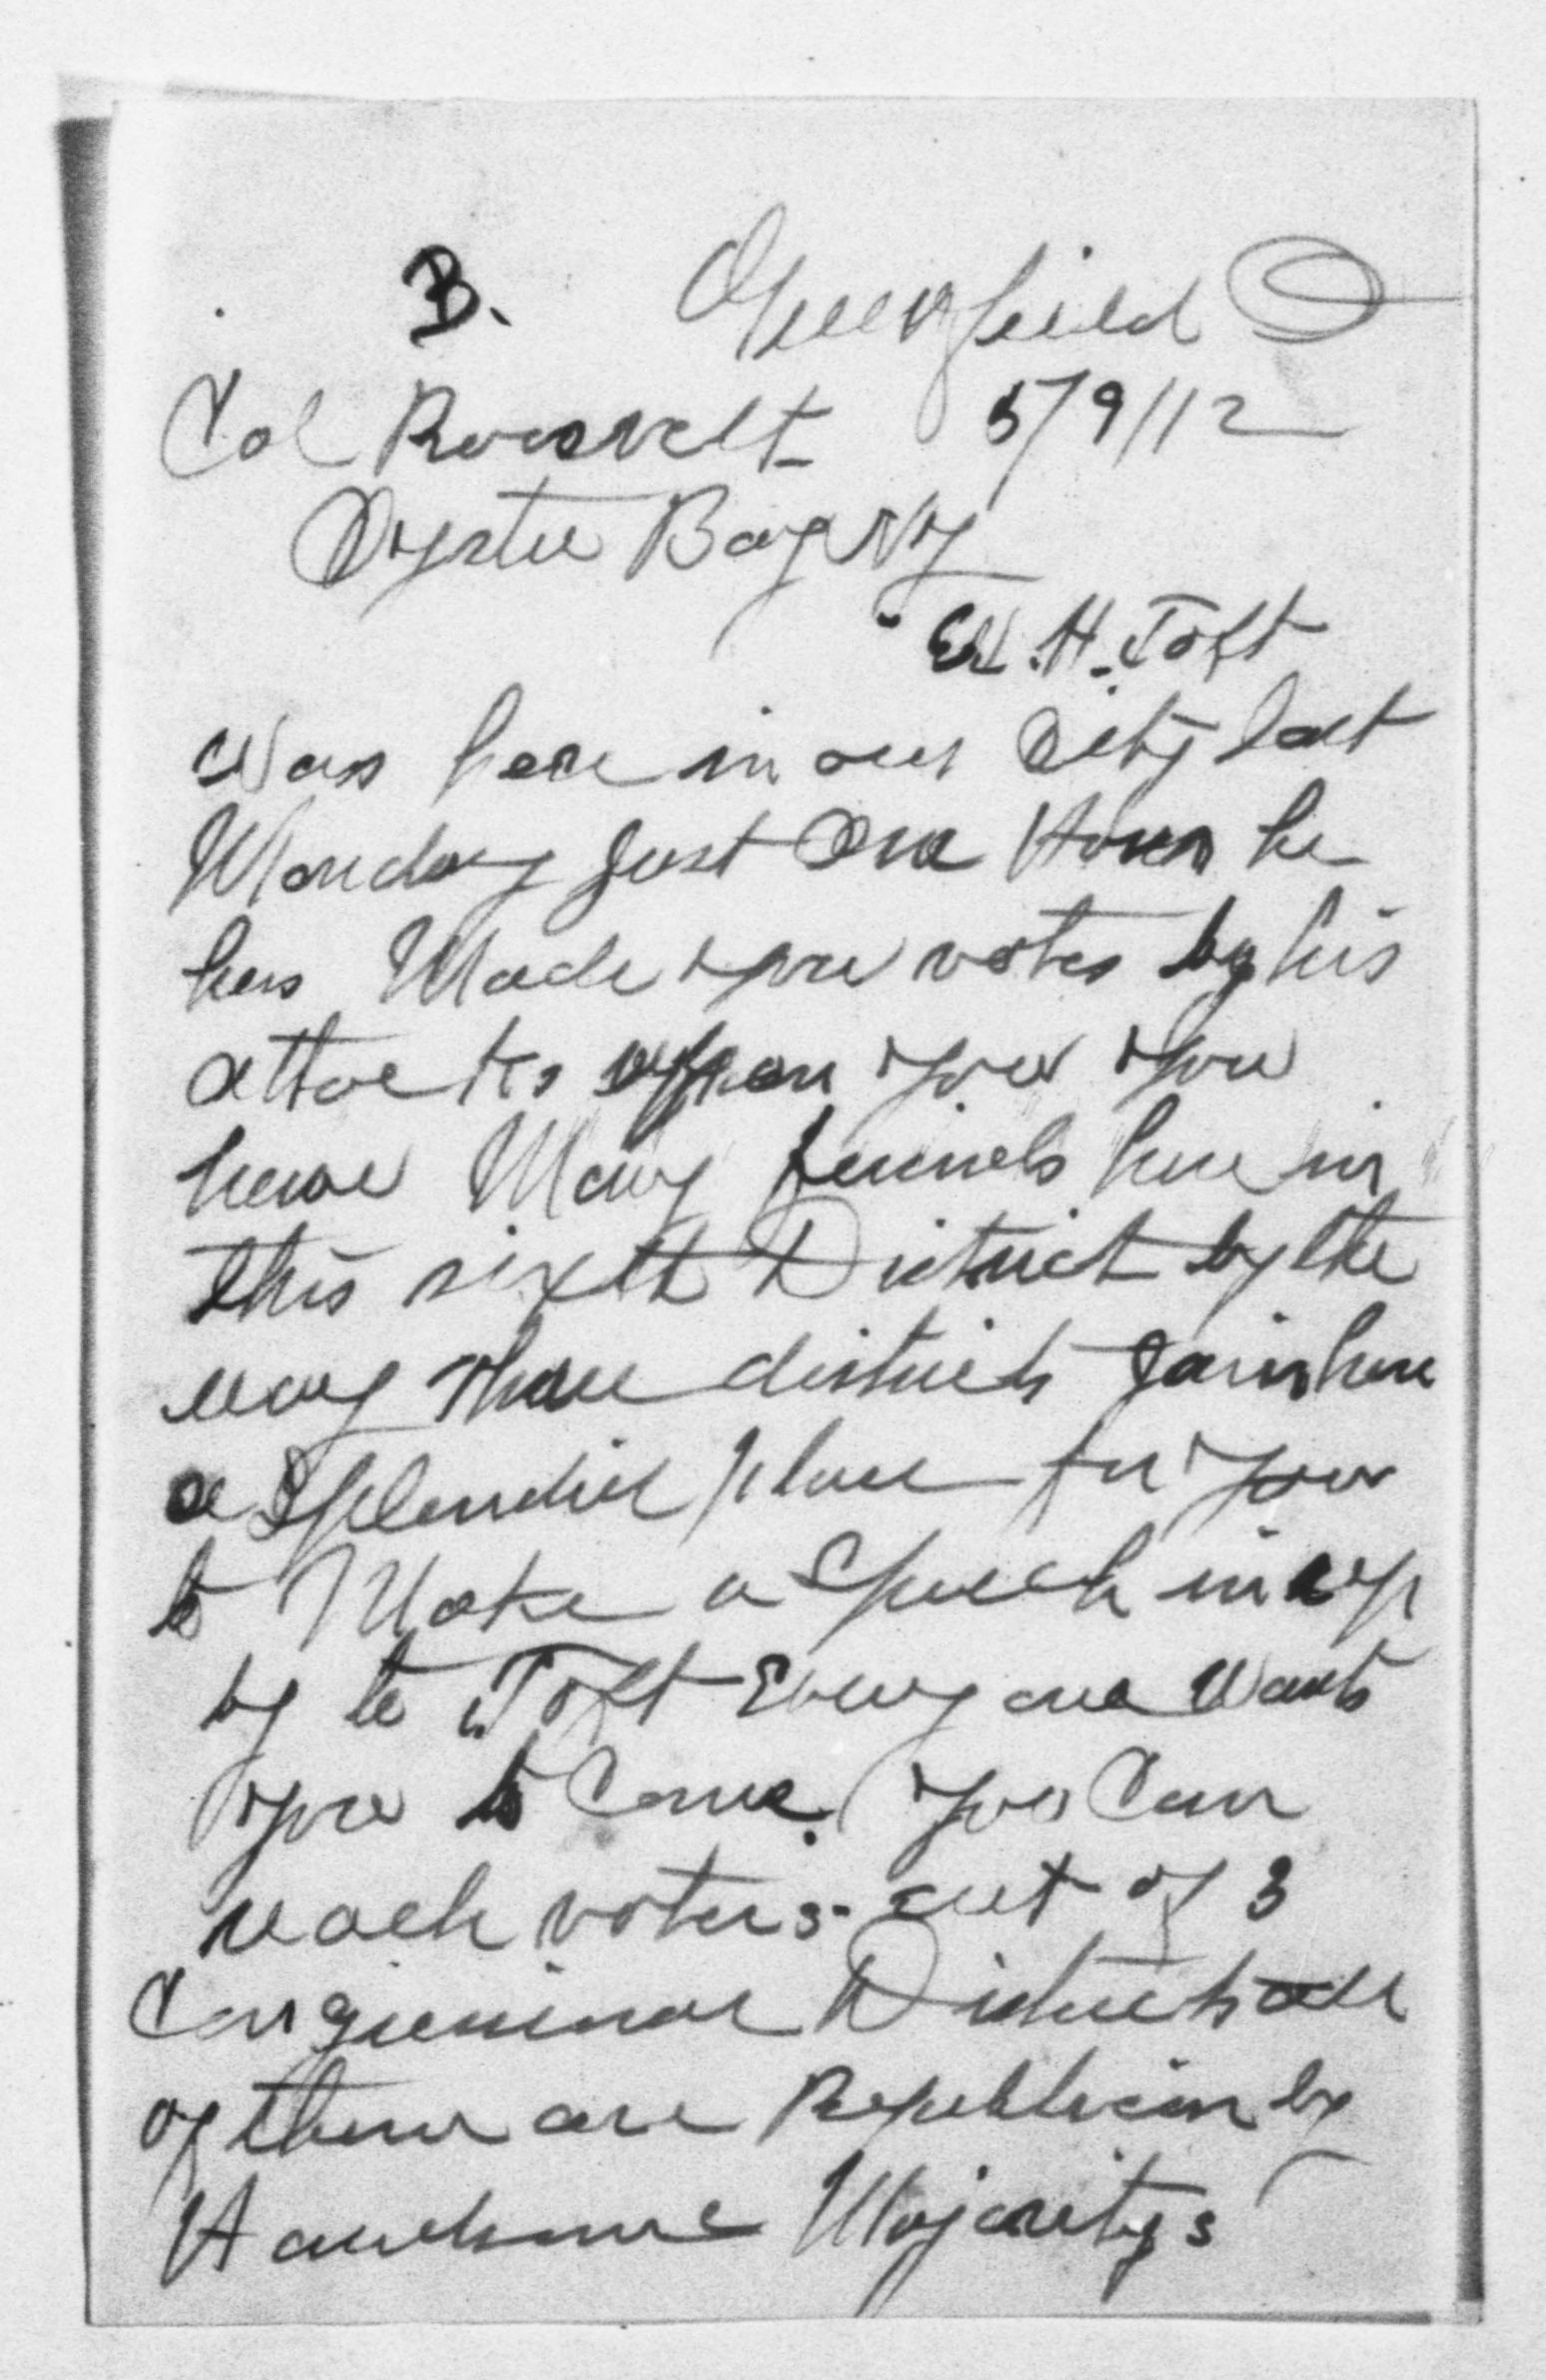 B. Greenfield O
Col Roosevelt 5/9/12
Oyster Bay NY
W. H. Taft
Was here in our City last
Monday just One Hour he
has Made you votes by his
attacks upon you you
have Many friends here in
this sixth District by the
way three districts join here
a Splendid place for you
to Make a Speech in rep
ly to Taft Every one wants
you to Come. you Can
reach voters out of 3
Districts all
of them are Republican by
Handsome Majoritys